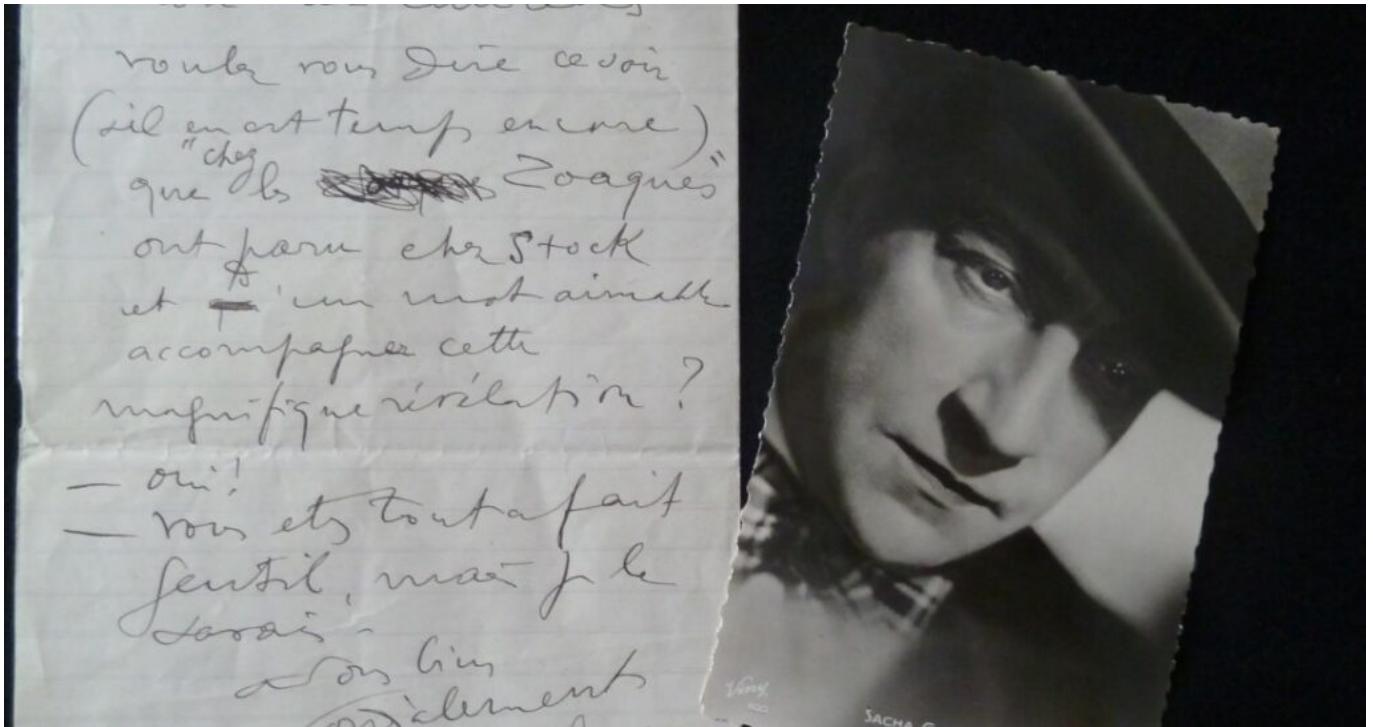 voulez vous dire ce soir
(s'il en est temps encore)
que "chez les Zoaques"
ont paru chez Stock
et qu'un mot aimable
accompagnera cette
magnifique révélation ?
— oui !
— vous etes tout a fait
gentil, mais je le
savais -
a vous bien
cordialement
Viny
SACHA G